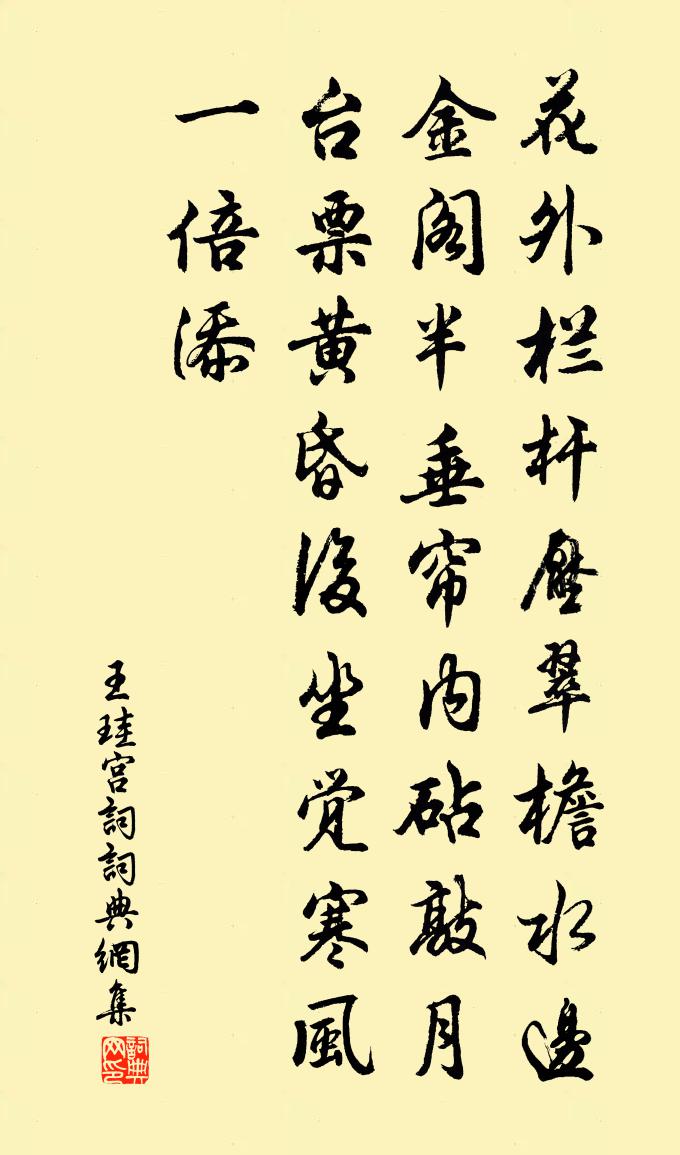 花外栏杆壓翠檐水邊
金阁半垂帘内砧敲月
台票黄昏後坐觉寒風
一倍添
王珪宫詞詞典網集
詞典网印